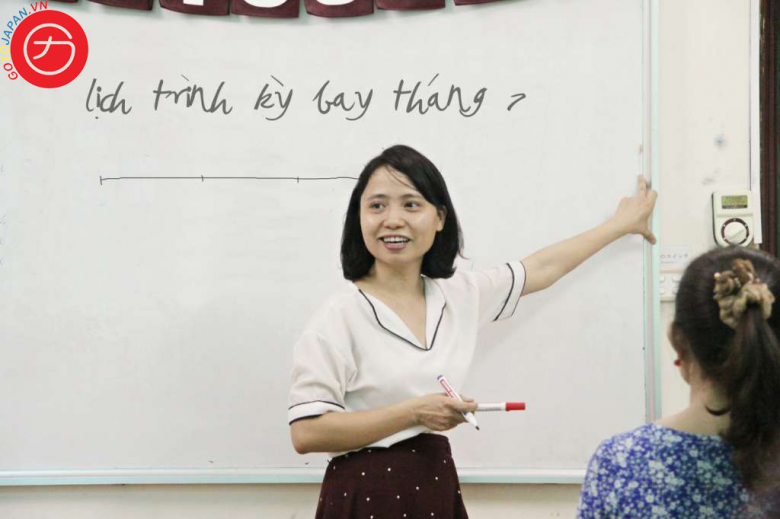 GO JAPAN.VN
lịch trình kỳ bay tháng 7